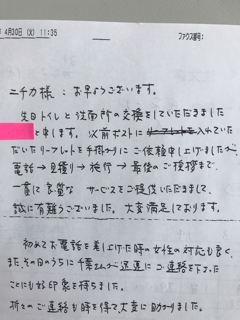 4月30日(火) 11:35 ファクス番号:
ニチカ様:お早ようございます。
先日トイレと洗面所の交換をしていただきました
と申します。以前ポストに入れていた
だいたリーフレットを手掛りにご依頼申し上げましたが、
電話→見積り→施行→最後のご挨拶まで、
一貫して良質な サービスをご提供いただきまして、
誠に有難うございました。大変満足しております。
初めてお電話を差し上げた時の女性の対応も良く、
また、その日のうちに千葉さんが迅速にご連絡を下さった
ことにも好印象を持ちました。
折々のご連絡も時を得て、大変に助かりました。